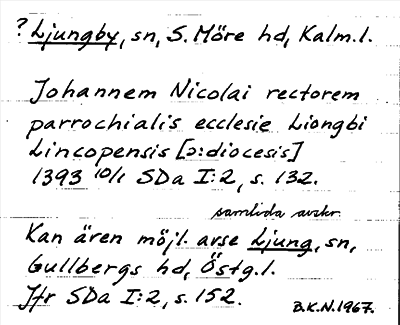 ? Ljungby, sn, S. Möre hd, Kalm.l.
Johannem Nicolai rectorem
parrochialis ecclesie Liongbi
Lincopensis [ɔ:diocesis]
1393 10/1 SDa I:2, s. 132.
samtida avskr.
Kan även möjl. avse Ljung, sn,
Gullbergs hd, Östg.l.
Jfr SDa I:2, s. 152.
B.K.N. 1967.